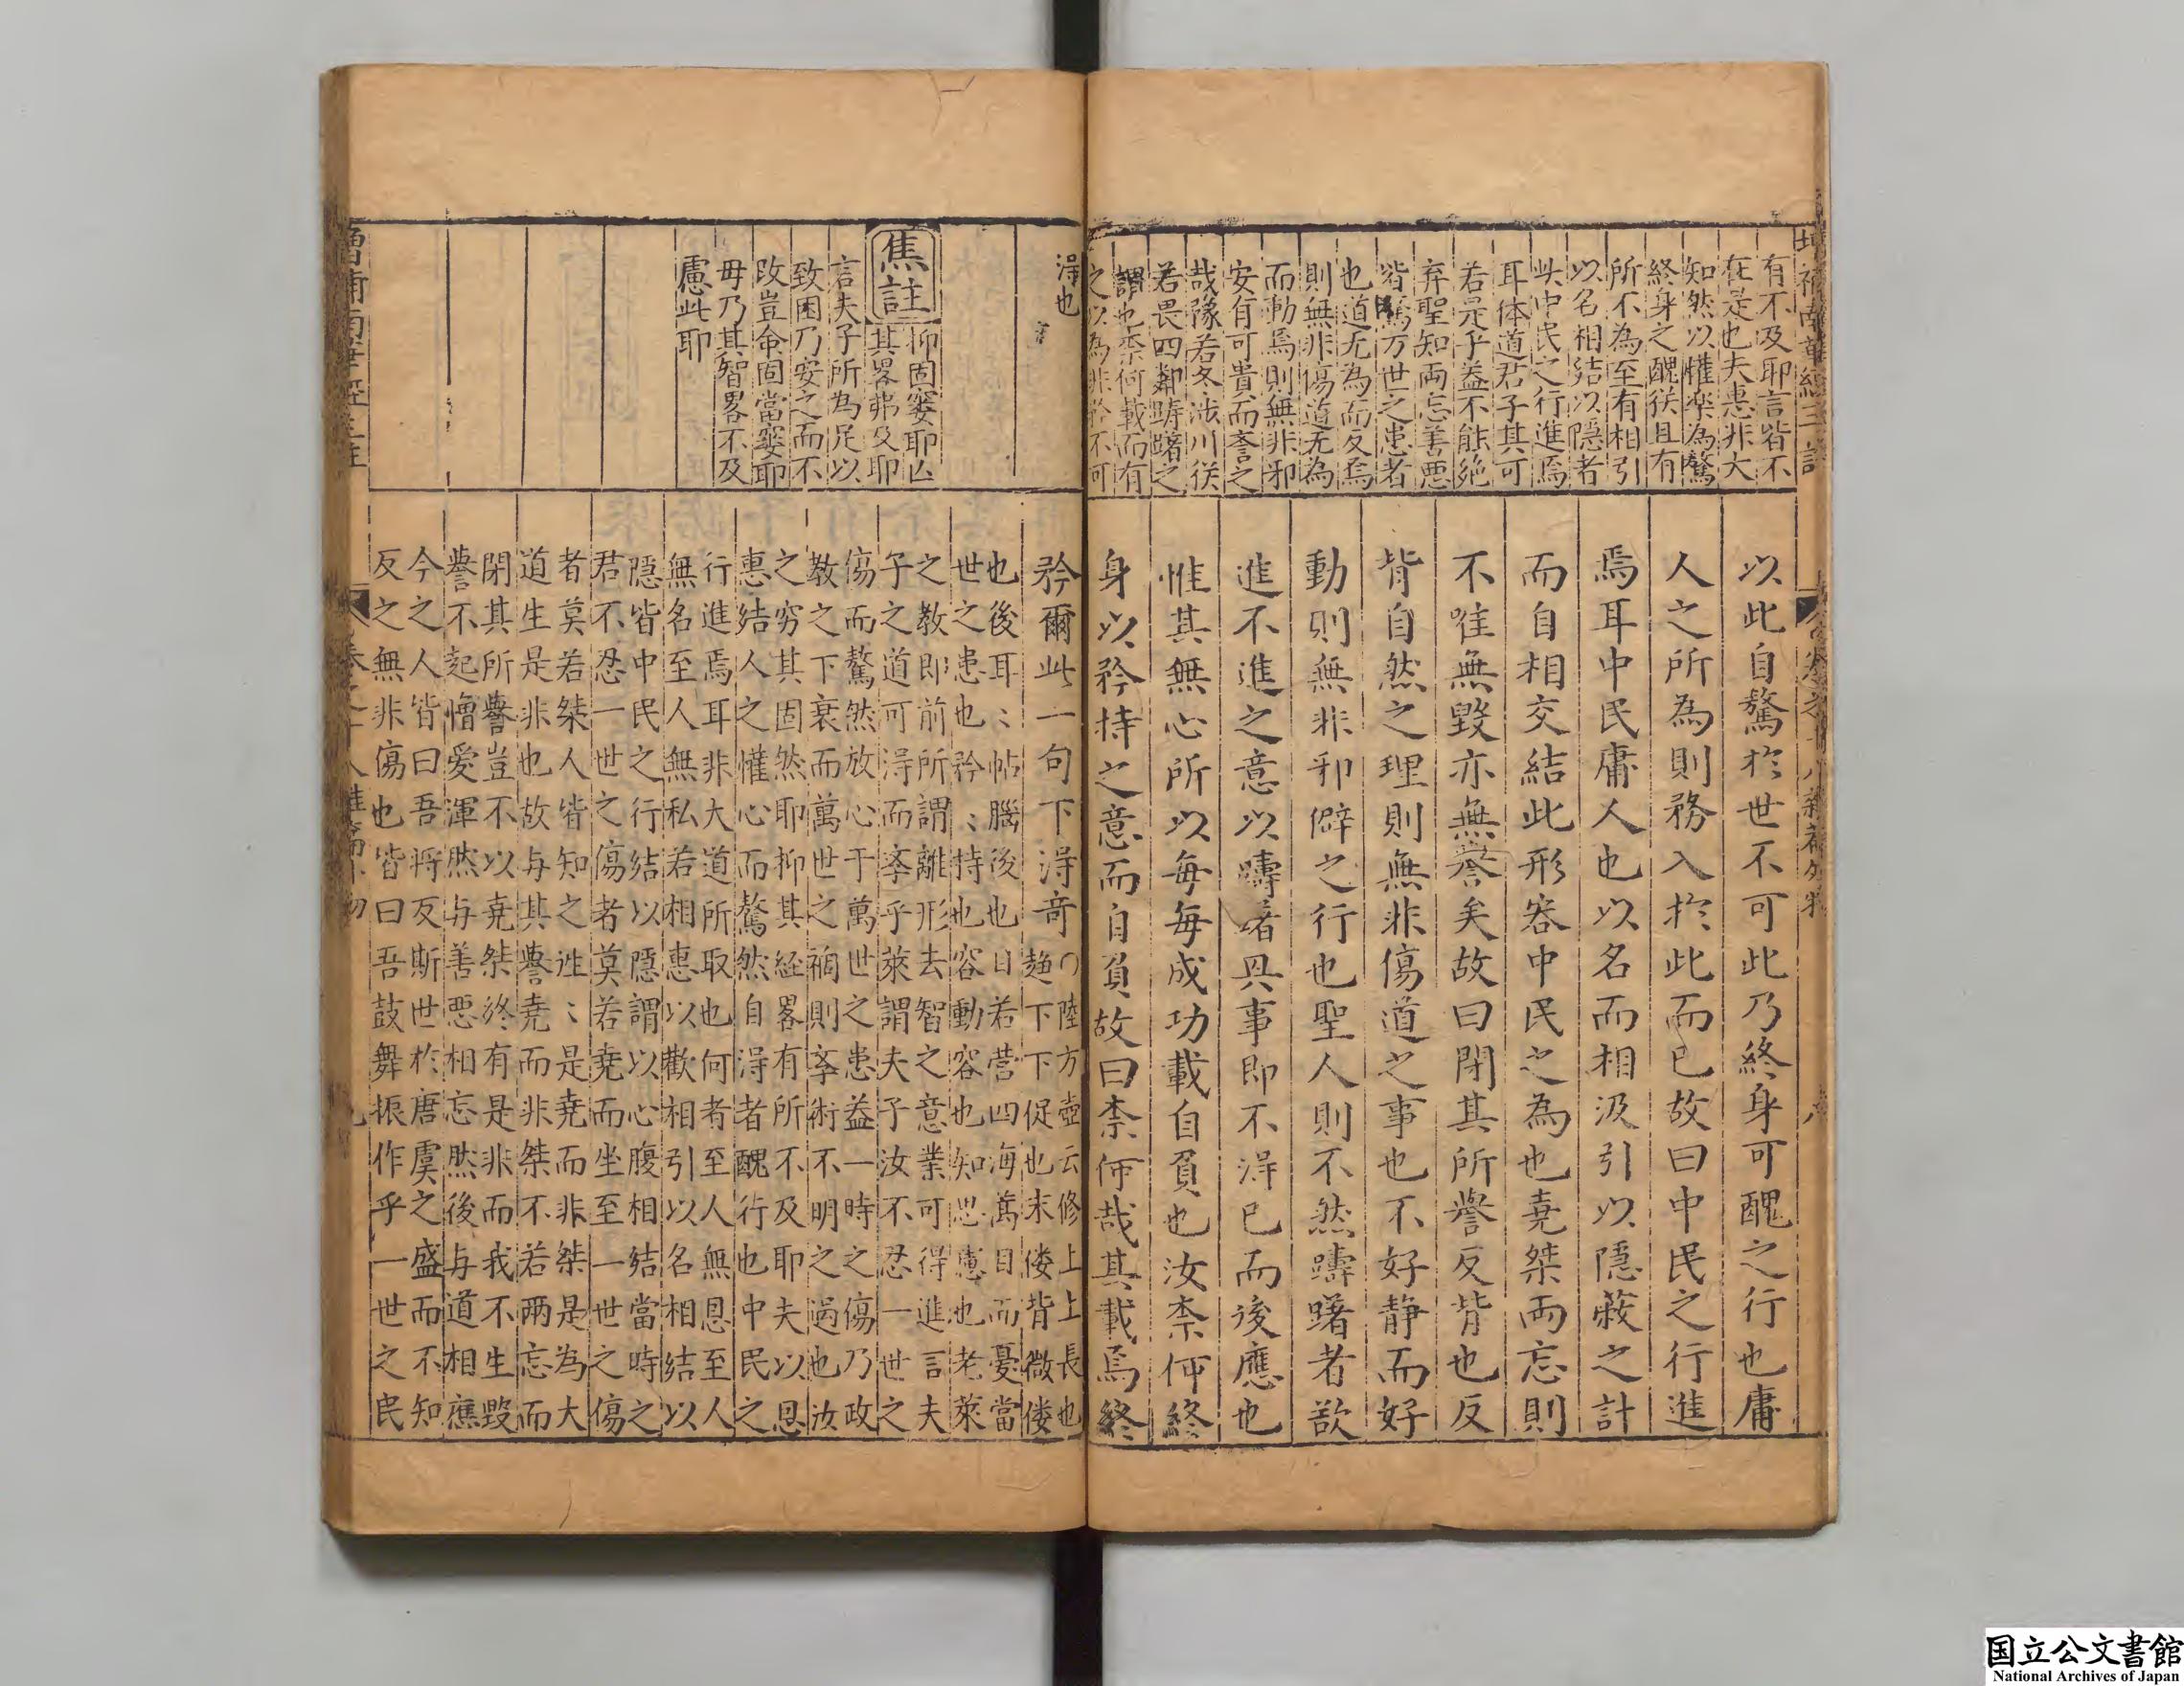 有不及耶言皆不
在是也夫惠非大
知然以懽楽為驁
終身之醜徒且有
所不為至有相引
以名相結以隱者
此中民之行進焉
耳体道君子其可
若是乎盖不能絶
弃聖知両忘善悪
皆驁万世之患者
也道无為而反焉
則無非傷道无為
而動焉則無非邪
安有可貴而誉之
哉豫若冬涉川徒
若畏四鄰躊躇之
謂也柰何載而有
之以為非矜不可
以此自驁於世不可此乃終身可醜之行也庸
人之所為則務入於此而已故曰中民之行進
焉耳中民庸人也以名而相汲引以隱蔽之計
而自相交結此形容中民之為也堯桀両忘則
不唯無毀亦無誉矣故曰閉其所譽反背也反
背自然之理則無非傷道之事也不好静而好
動則無非邪僻之行也聖人則不然躊躇者欲
進不進之意以躊躇興事即不淂已而後應也
惟其無心所以每每成功載自負也汝柰何終
身以矜持之意而自負故曰柰何哉其載焉終
淂也
焦註
抑固窭耶亾
其畧弗及耶
言夫子所為足以
致困乃安之而不
改豈命固當窭耶
毋乃其智畧不及
慮此耶
矜爾此一句下淂竒
〇陸方壺云修上上長也
趨下下促也末偻背微偻
也後耳〻帖腦後也日若营四海蒿目而憂當
世之患也矜〻持也容動容也知思慮也老萊
之教即前所謂離形去智之意業可得進言夫
子之道可淂而李乎萊謂夫子汝不忍一世之
傷而驁然放心于萬世之患盖一時之傷乃政
教之下衰而萬世之禍則李術不明之過也汝
之穷其固然耶抑其経畧有所不及耶夫以恩
惠結人之懽心而驁然自淂者醜行也中民之
行進焉耳非大道所取也何者至人無恩至人
無名至人無私若相惠以歡相引以名相結以
隱皆中民之行結以隱謂以心腹相結當時之
君不忍一世之傷者莫若堯而坐至一世之傷
者莫若桀人皆知之诳〻是堯而非桀是為大
道生是非也故与其譽堯而非桀不若両忘而
閉其所譽豈不以堯桀終有是非而我不生毀
譽不起憎愛渾然与善悪相忘然後与道相應
今之人皆曰吾将反斯世於唐虞之盛而不知
反之無非傷也皆曰吾鼓舞振作乎一世之民
国立公文書館
National Archives of Japan